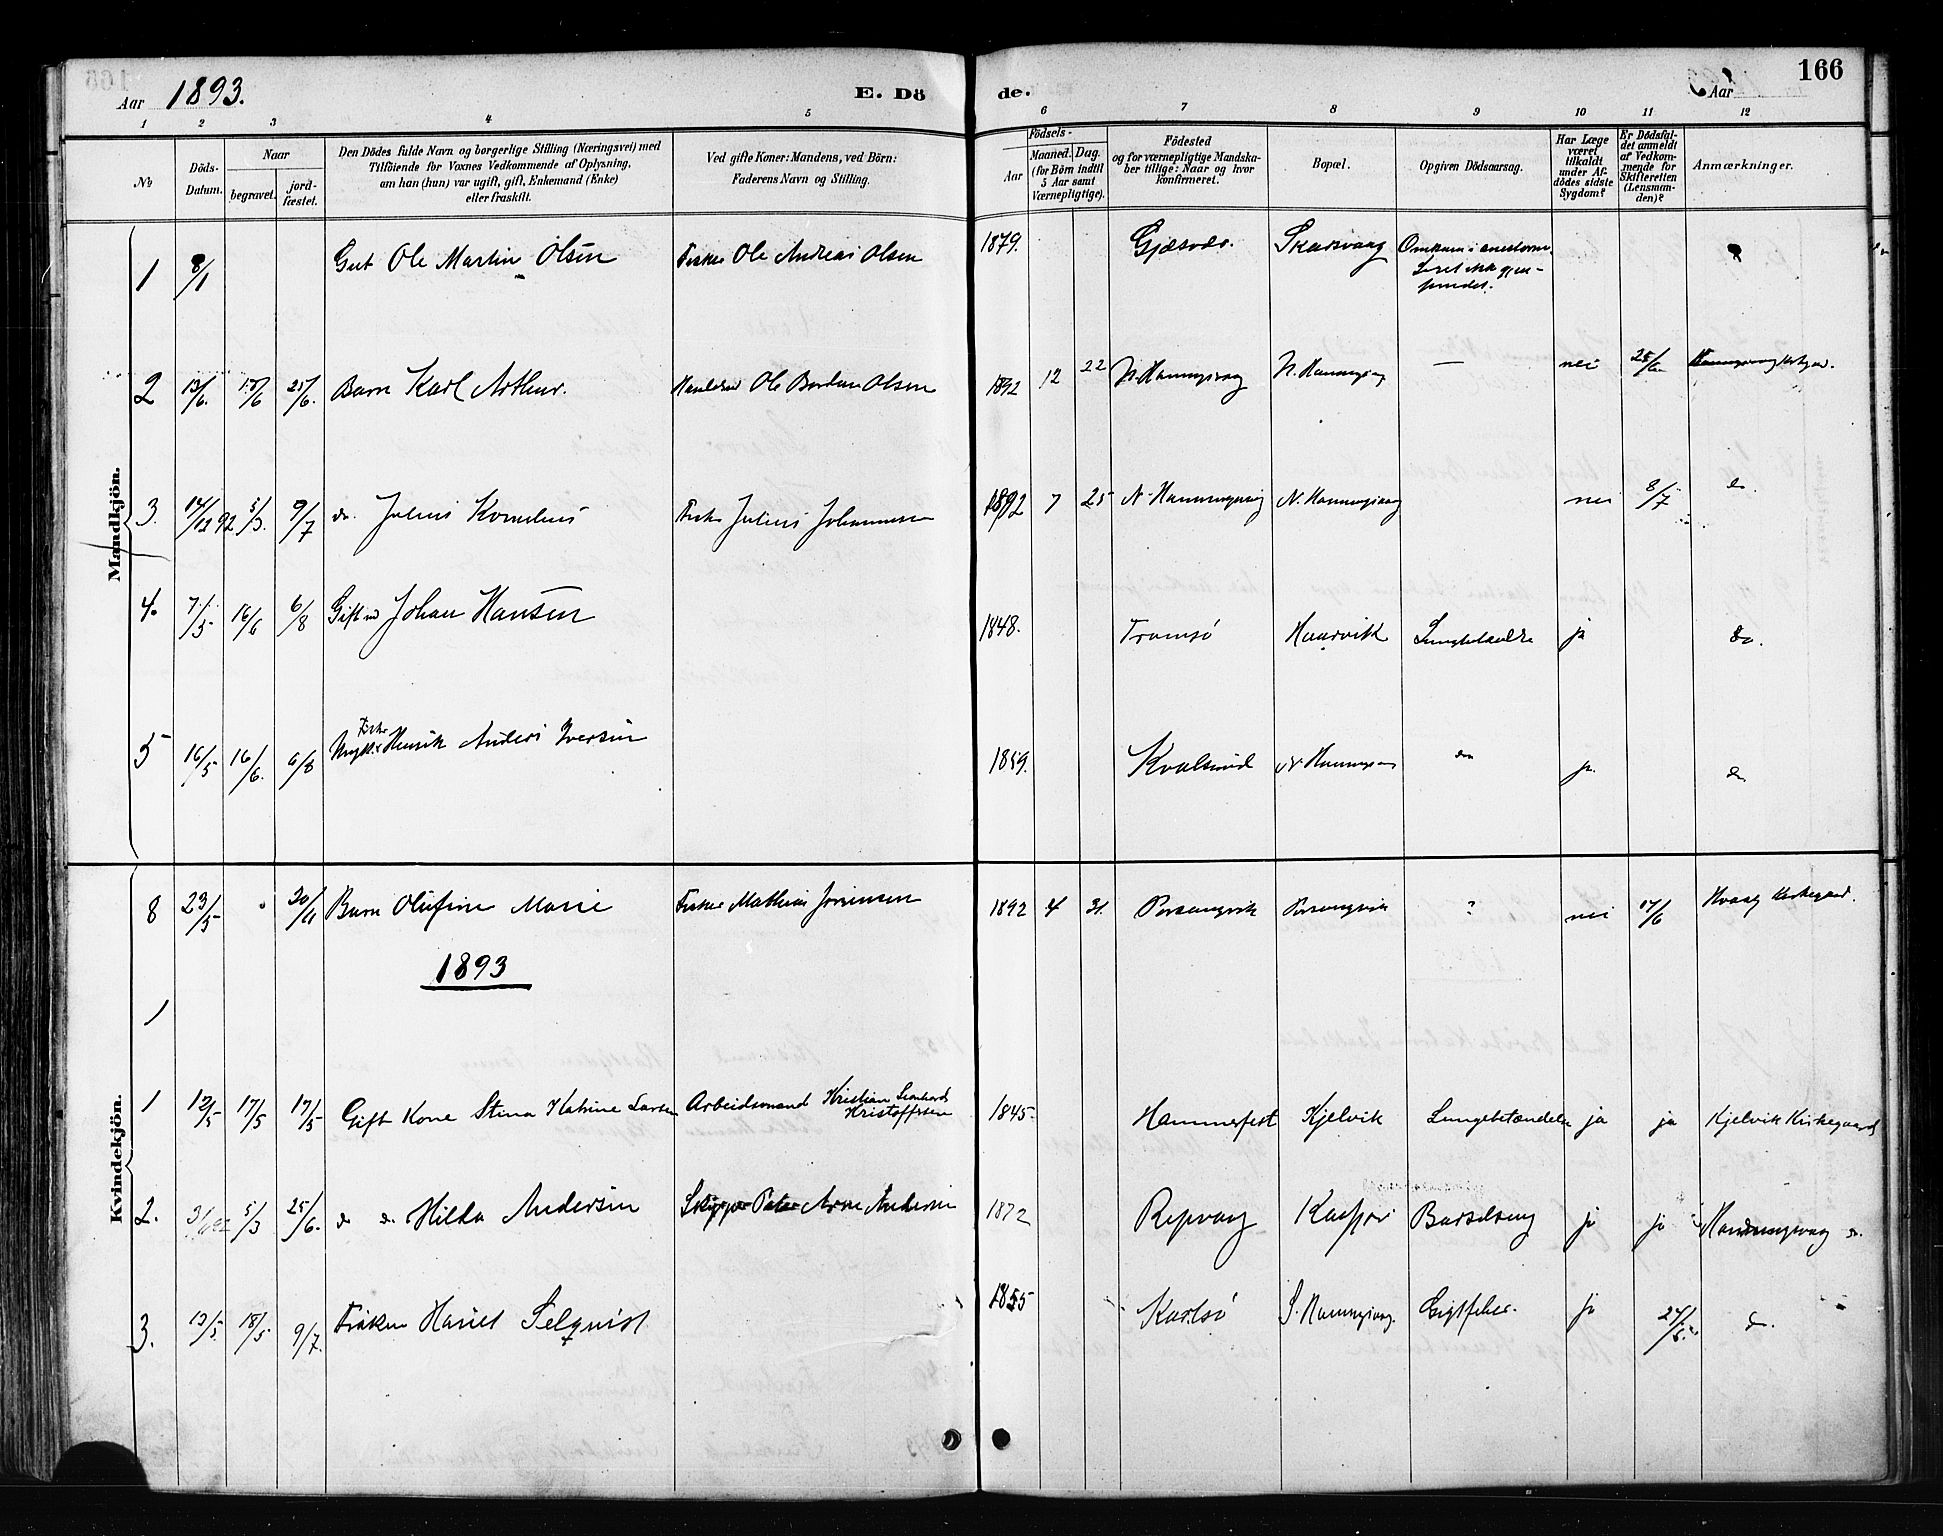 Aar 1893.
E. Dö de.
Aar
166
1 2 3 4 5 6 7 8 9 10 11 12
№
Döds-Datum.
Naar begravet. jord-fæstet.
Den Dödes fulde Navn og borgerlige Stilling (Næringsvei) med
Tilföiende for Voxnes Vedkommende af Oplysning,
om han (hun) var ugift, gift, Enkemand (Enke)
eller fraskilt.
Ved gifte Koner: Mandens, ved Börn:
Faderens Navn og Stilling.
Födsels-
Aar Maaned. Dag.
(for Börn indtil
5 Aar samt
Værnepligtige).
Födested
og for værnepligtige Mandska-
ber tillige: Naar og hvor
konfirmeret.
Bopæl.
Opgiven Dödsaarsag.
Har Læge
været
tilkaldt
under Af-
dödes sidste
Sygdom?
Er Dödsfal-
det anmeldt
af Vedkom-
mende for
Skifteretten
(Lensman-
den)?
Anmærkninger.
Mandkjön.
1 8/1 Gut Ole Martin Olsen Fisker Ole Andreas Olsen 1879. Gjæsvær. Skarsvaag Omkom i
2 13/6. 17/6 25/6. Barn Karl Arthur. Ole Olsen 1892 12 22 N. Honningsvaag N. Honningsvaag — nei 25/6 Honningsvaag Kirkegd.
3. 14/12 92 5/3. 9/7 do. Julius Kornelius Fisker Julius Johannesen 1892 7 25 N. Honningsvaag N. Honningsvaag nei 8/7 do.
4. 7/5 16/6 6/8 Gift Johan Hansen 1848. Tromsö ja do.
5 16/5 16/6. 6/8 Ungk. Fisker Henrik Anders Iversen 1859. Kvalsund N. Honningsvaag do ja do
Kvindekjön.
8 23/5 " 30/11 Barn Olufine Marie Fisker Mathias Jörgensen 1892 31. Porsangvik Porsangvik ? nei 17/6 Hvaag Kirkegaard.
1893
1
1 12/5 17/5 17/5 Gift Kone Stina Katrine Larsen Arbeidsmand Kristian Leonhard Kristoffersen 1845. Hammerfest Kjelvik Lungebetændelse ja ja Kjelvik Kirkegaard
2. 5/3 25/6. do do. Hilda Andersen Skipper Peter Arne Andersen 1872 Repvaag Barselseng ja ja Honningsvaag do.
3. 13/5 18/5 9/7. Fröken Selqvist 1855 Karlsö S. Honningsvaag. Gigtfeber. ja do.